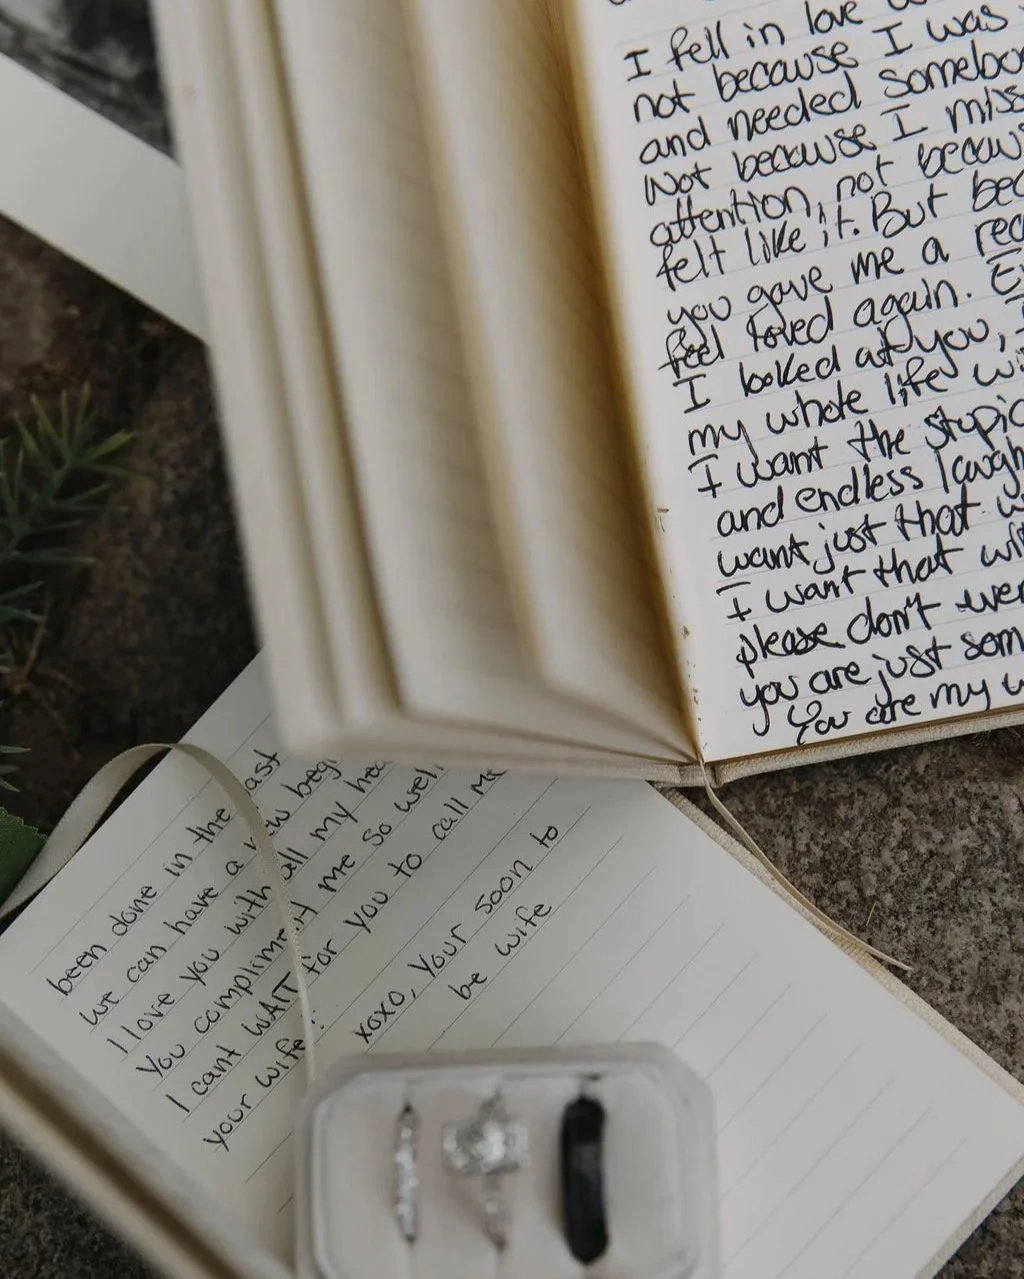 I fell in love
not because I was
and needed
Not because I
attention, not
felt like it. But
you gave me a
feel loved again.
I looked at you,
my whole life
I want the
and endless
want just that.
I want that
please don't ever
you are just
You are my
been done in the past
we can have a new
I love you with all my
You compliment me so well.
I cant WAIT for you to call me
your wife!
xoxo, Your soon to
be wife